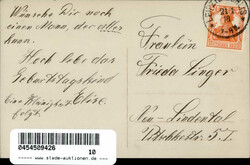 Wünsche Dir noch
einen Mann, der alles
kann.
Hoch lebe das
Geburtstagskind
Elise
folgt.
Fräulein
Frieda Singer
Neu-Lindental
0454509426
10
www.stade-auktionen.de